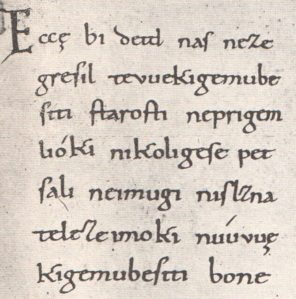 Eccę bi detd naſ neze
greſil tevuekigemube
ſiti ſtaroſti neprigem
lióki nikoligeſe pet
ſali neimugi niſlzna
teleze imoki núúvuę
kigemubeſiti bone